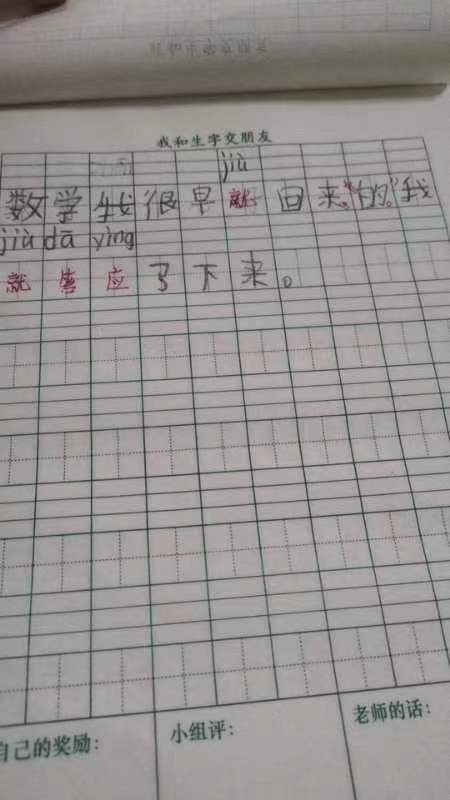 我和生字交朋友
jiù
数学我很早就回来的。"我
jiù dā yìng
就答应了下来。
自己的奖励:
小组评:
老师的话: